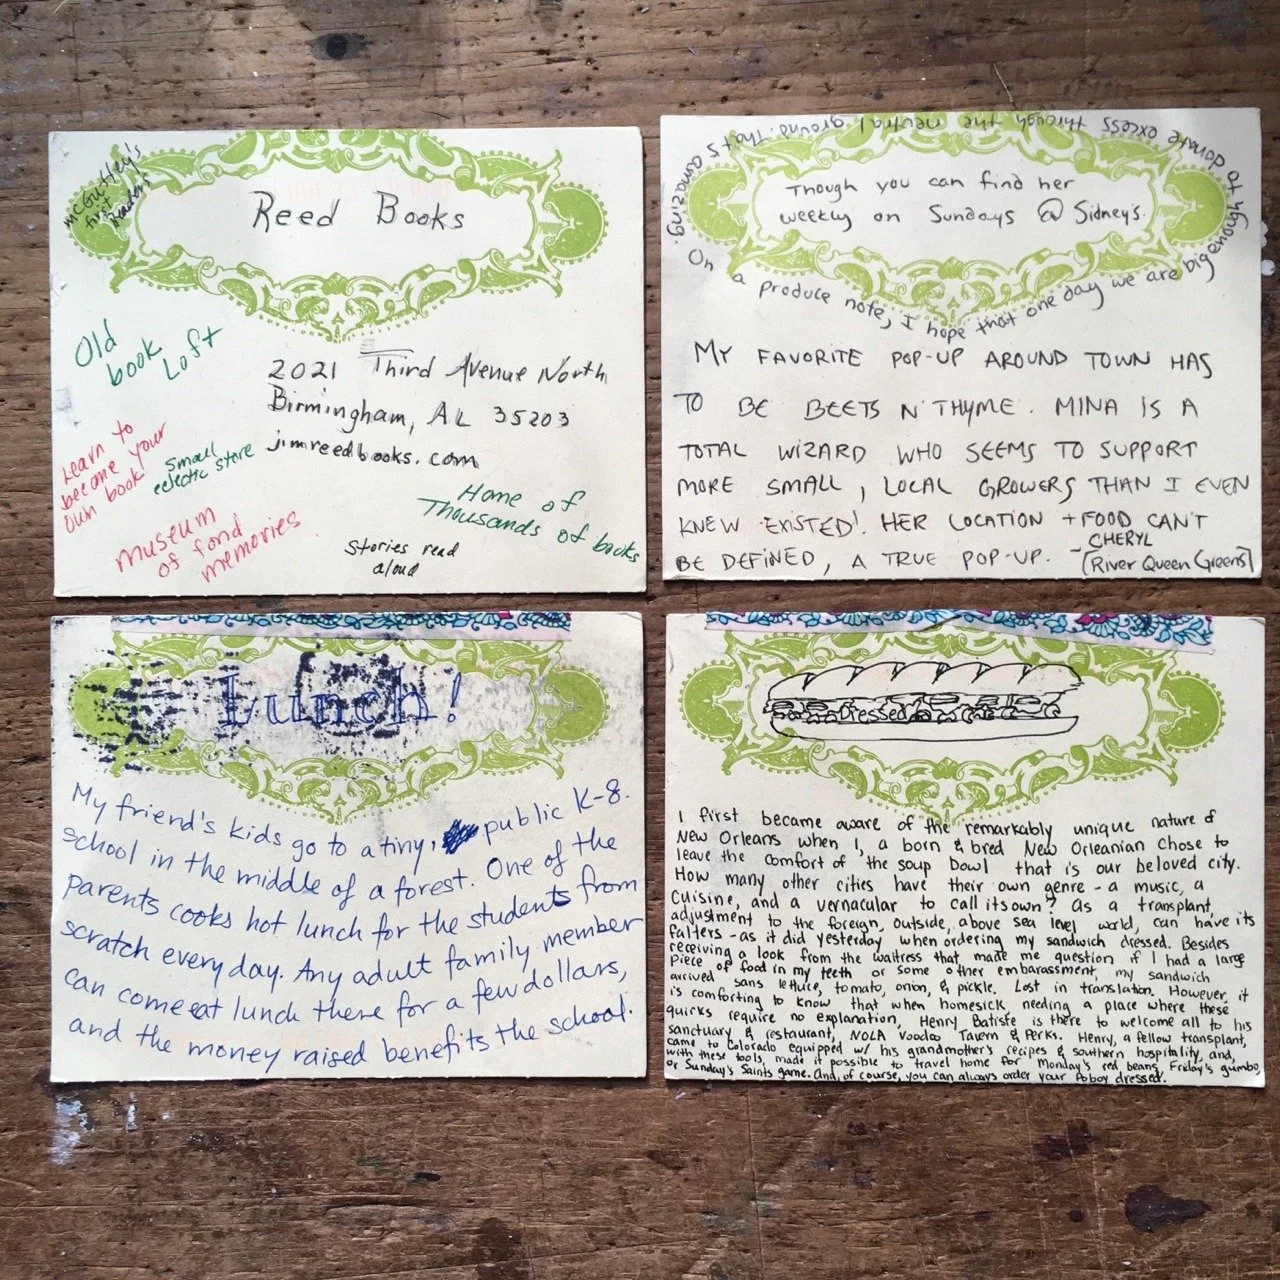 McGuffey's
first
Readers
Reed Books
Old
book
Loft
2021 Third Avenue North
Birmingham, AL 35203
jimreedbooks.com
Learn to
become your
own book
Small
eclectic store
Home of
Thousands of books
museum
of fond
memories
Stories read
aloud
Though you can find her
weekly on Sundays @ Sidney's.
On a produce note, I hope that one day we are big enough to donate excess through the neutral ground. That's amazing.
MY FAVORITE POP-UP AROUND TOWN HAS
TO BE BEETS N' THYME. MINA IS A
TOTAL WIZARD WHO SEEMS TO SUPPORT
MORE SMALL, LOCAL GROWERS THAN I EVEN
KNEW EXISTED! HER LOCATION + FOOD CAN'T
BE DEFINED, A TRUE POP-UP. - CHERYL
(River Queen Greens)
Lunch!
My friend's kids go to a tiny, public K-8
school in the middle of a forest. One of the
parents cooks hot lunch for the students from
scratch every day. Any adult family member
can come eat lunch there for a few dollars,
and the money raised benefits the school.
Dressed
I first became aware of the remarkably unique nature of
New Orleans when I, a born & bred New Orleanian chose to
leave the comfort of the soup bowl that is our beloved city.
How many other cities have their own genre - a music, a
cuisine, and a vernacular to call its own? As a transplant,
adjustment to the foreign, outside, above sea level world, can have its
falters - as it did yesterday when ordering my sandwich dressed. Besides
receiving a look from the waitress that made me question if I had a large
piece of food in my teeth or some other embarassment, my sandwich
arrived sans lettuce, tomato, onion, & pickle. Lost in translation. However, it
is comforting to know that when homesick, needing a place where these
quirks require no explanation, Henry Batiste is there to welcome all to his
sanctuary & restaurant, NOLA Voodoo Tavern & Perks. Henry, a fellow transplant,
came to Colorado equipped w/ his grandmother's recipes & southern hospitality, and,
with these tools, made it possible to travel home for Monday's red beans, Friday's gumbo,
or Sunday's Saints game. And, of course, you can always order your Poboy dressed.